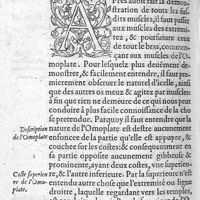 A Pres auoir fait la demon-
stration de tous les sus-
dits muscles, il faut passer
aux muscles des extremi-
tez, & poursuiure ceux
de tout le bras, commen-
çant aux muscles de l'O-
moplate. Pour lesquelz plus deuëment de-
monstrer, & facilement entendre, il faut pre-
mierement obseruer le naturel d'icelle, ainsi
que des autres os meuz & agitez par muscles:
à fin que rien ne demeure de ce qui en nous
conduire à plus facile congnoissance de la cho-
se pretendue. Parquoy il faut entendre que la
Description
de l'Omoplate
nature de l'Omoplate est dicte aucunement
enfoncee de la partie qu'elle est appuyee, &
couchee sus les costes: en apres que de sa par-
tie opposite apparoit aucunement gibbeuse &
Coste superieu
re de l'Omo-
plate.
prominente, ayant deux costes, vne superieu-
re, & l'autre inferieure. Par la superieure n'est
entendu autre chose que l'extremité ou ligne
droitte, laquelle regardant vers les temples,